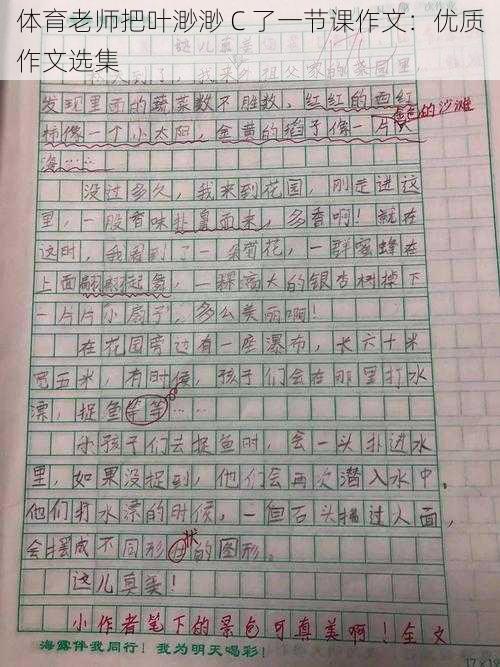 体育老师把叶渺渺 C 了一节课作文：优质
作文选集
祖父家的菜园里，
发现里面的蔬菜数不胜数，红红的西红
柿像一个小太阳，金黄的 子像一片
金色的沙滩
海……
没过多久，我来到花园，刚走进这
里，一股香味扑鼻而来，多香啊！就在
这时，我看到了一朵菊花，一群蜜蜂在
上面翩翩起舞，一棵高大的银杏树掉下
一片片小扇子，多么美丽啊！
在花园旁边有一座瀑布，长六十米
宽五米，有时候，孩子们会在那里打水
漂，捉鱼等等……
小孩子们去捉鱼时，会一头扑进水
里，如果没捉到，他们会再次潜入水中，
他们打水漂的时候，一块石头描过人面，
会摆成不同形 的图形。
状
这儿真美！
小作者笔下的景色可真美啊！全文
海露伴我同行！我为明天喝彩！